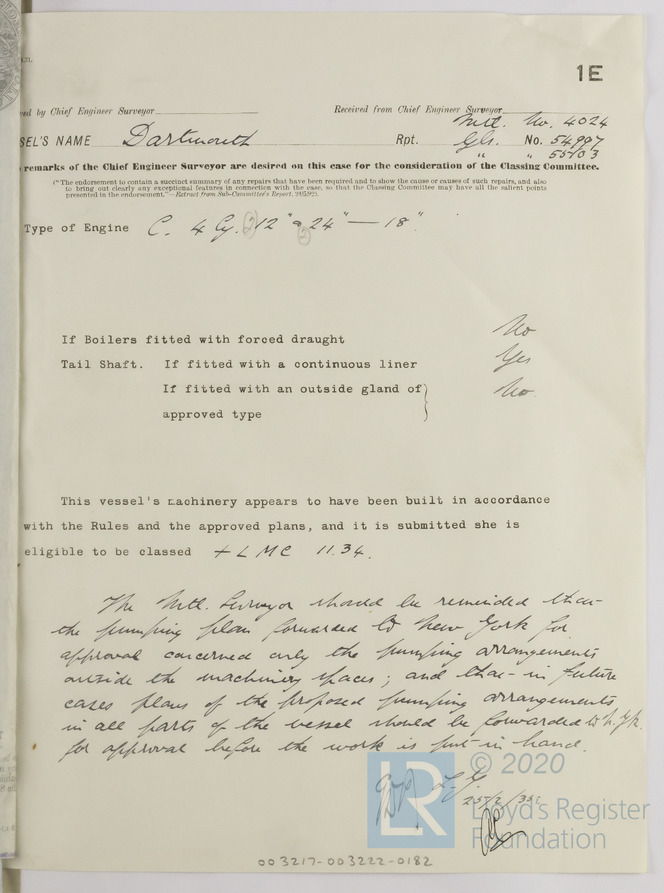 1E
ed by Chief Engineer Surveyor
Received from Chief Engineer Surveyor
Mtl. No. 4024
SEL'S NAME Dartmouth Rpt. Gls. No. 54997
" " 55103
remarks of the Chief Engineer Surveyor are desired on this case for the consideration of the Classing Committee.
(" The endorsement to contain a succinct summary of any repairs that have been required and to show the cause or causes of such repairs, and also
to bring out clearly any exceptional features in connection with the case, so that the Classing Committee may have all the salient points
presented in the endorsement."—Extract from Sub-Committee's Report,
Type of Engine C. 4 Cy. (2) 12" & (2) 24" — 18"
If Boilers fitted with forced draught No
Tail Shaft. If fitted with a continuous liner Yes
If fitted with an outside gland of} No
approved type
This vessel's machinery appears to have been built in accordance
with the Rules and the approved plans, and it is submitted she is
eligible to be classed + LMC 11.34.
The Mtl. Surveyor should be reminded that
the pumping plan forwarded to New York for
approval concerned only the pumping arrangements
outside the machinery spaces; and that in future
cases plans of the proposed pumping arrangements
in all parts of the vessel should be forwarded to N.Yk.
for approval before the work is put in hand.
25/2/35
LR
© 2020
Lloyd's Register
Foundation
003217-003222-0182